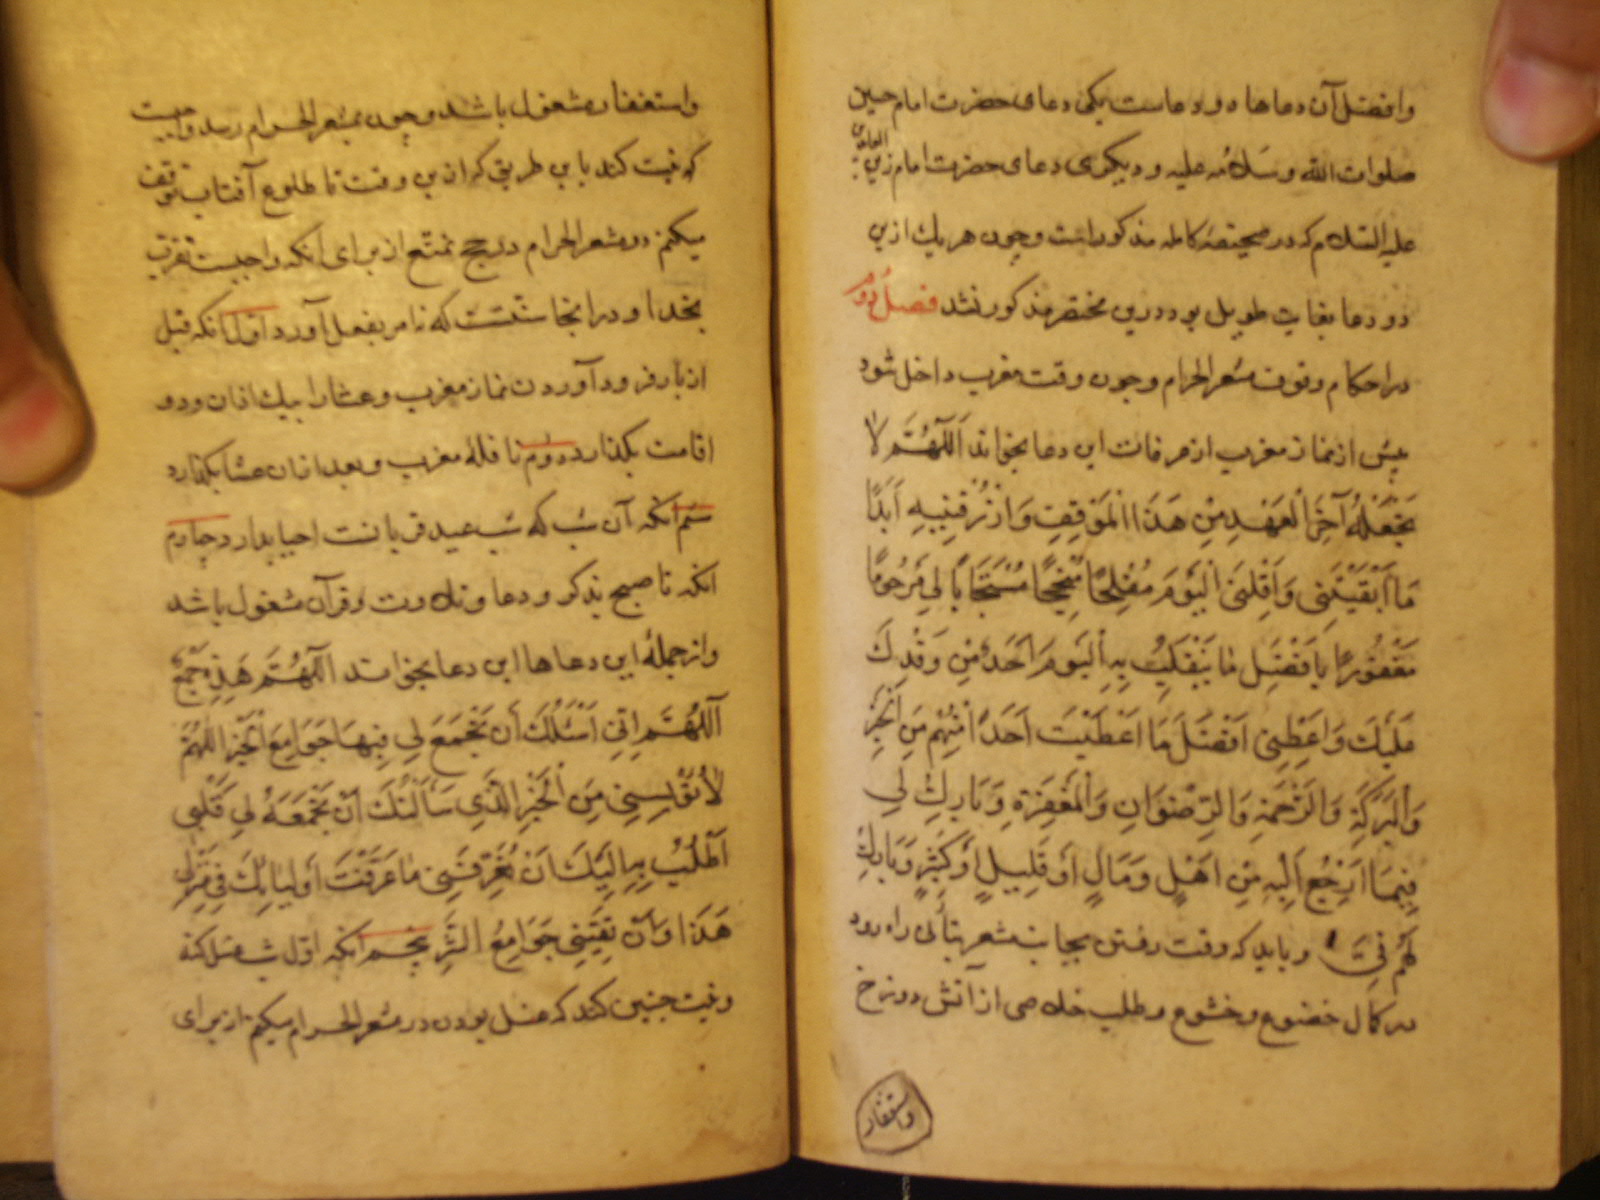 وافضل آن دعاها دو دعاست یکی دعای حضرت امام حسین
صلوات الله وسلامه علیه و دیگری دعای حضرت امام زین العابدین
علیه السلام که در صحیفهٔ کامله مذکور است وچون هر یک ازین
دو دعا بغایت طویل بود درین مختصر مذکور نشد فصل دوم
در احکام وقوف مشعر الحرام وچون وقت مغرب داخل شود
پیش از نماز مغرب از عرفات این دعا بخواند اَللّهُمَّ لا
تَجْعَلْهُ آخِرَ الْعَهْدِ مِنْ هَذَا الْمَوْقِفِ وَارْزُقْنِیهِ اَبَدًا
مَا اَبْقَیْتَنِی وَاقْلِبْنِی الْیَوْمَ مُفْلِحًا مُنْجِحًا مُسْتَجَابًا لِی مَرْحُومًا
مَغْفُورًا بِاَفْضَلِ مَا یَنْقَلِبُ بِهِ الْیَوْمَ اَحَدٌ مِنْ وَفْدِكَ
عَلَیْكَ وَاَعْطِنِی اَفْضَلَ مَا اَعْطَیْتَ اَحَدًا مِنْهُمْ مِنَ الْخَیْرِ
وَالْبَرَکَةِ وَالرَّحْمَةِ وَالرِّضْوَانِ وَالْمَغْفِرَةِ وَبَارِكْ لِی
فِیمَا اَرْجِعُ اِلَیْهِ مِنْ اَهْلٍ وَمَالٍ اَوْ قَلِیلٍ اَوْ کَثِیرٍ وَبَارِكْ
لَهُمْ فِیَّ و باید که وقت رفتن بجانب مشعر بتأنی راه رود
در کمال خضوع وخشوع وطلب خلاصی از آتش دوزخ
واستغفار
واستغفار مشغول باشد وچون بمشعر الحرام رسد واجبست
که نیت کند باین طریق که ازین وقت تا طلوع آفتاب توقف
میکنم در مشعر الحرام در حج تمتع از برای آنکه واجبست تقرب
بخدا و در انجا سنتست که ده امر بفعل آورد اول آنکه قبل
از بار فرود آوردن نماز مغرب وعشا را بیك اذان ودو
اقامت بگذارد دوم نافلهٔ مغرب و بعد اذان عشا بگذارد
سیم آنکه آن شب که شب عید قربانست احیا بدارد چهارم
آنکه تا صبح بذکر ودعا وتلاوت قرآن مشغول باشد
واز جملهٔ این دعاها این دعا بخواند اَللّهُمَّ هَذِهِ جَمْعٌ
اَللّهُمَّ اِنِّی اَسْئَلُكَ اَنْ تَجْمَعَ لِی فِیهَا جَوَامِعَ الْخَیْرِ اللّهُمَّ
لاتُؤْیِسْنِی مِنَ الْخَیْرِ الَّذِی سَاَلْتُكَ اَنْ تَجْمَعَهُ لِی قَلْبِی
اَطْلُبُ اِلَیْكَ اَنْ تُعَرِّفَنِی مَا عَرَّفْتَ اَوْلِیَائَكَ فِی مَنْزِلِی
هَذَا وَاَنْ تَقِیَنِی جَوَامِعَ الشَّرِّ پنجم آنکه اول شب غسل کند
ونیت چنین کند که غسل بودن در مشعر الحرام میکنم از برای